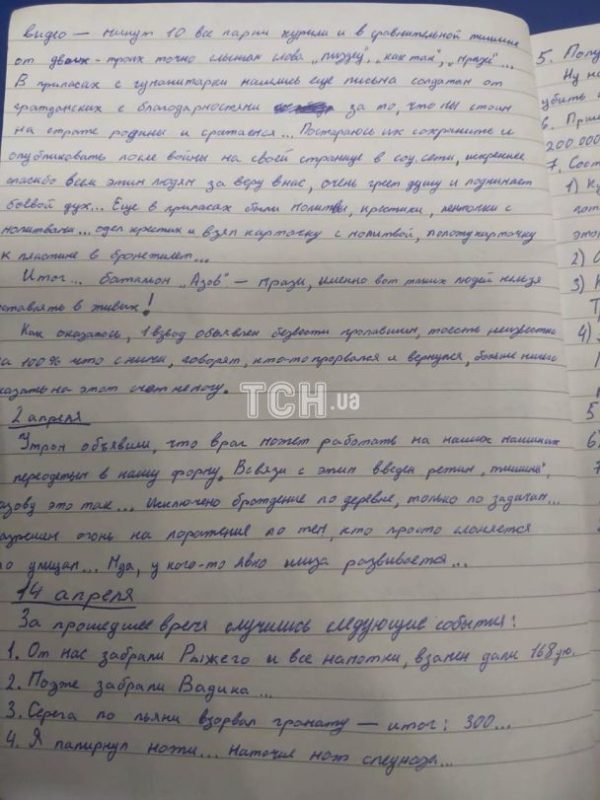 видео — минут 10 все парни курили и в сравнительной тишине
от двоих-троих точно слышал слова „пиздец", „как так", „мрази"...
В припасах с гуманитарки нашлись еще письма солдатам от
гражданских с благодарностями за то, что мы стоим
на страже родины и сражаемся... Постараюсь их сохранить и
опубликовать после войны на своей странице в соц.сети, искреннее
спасибо всем этим людям за веру в нас, очень греет душу и поднимает
боевой дух... Еще в припасах были молитвы, крестики, ленточки с
молитвами... одел крестик и взял карточку с молитвой, положу карточку
к пластине в бронежилет...
Итог... батальон „Азов" — мрази, именно вот таких людей нельзя
оставлять в живых!
Как оказалось, 1 взвод объявлен безвести пропавшим, тоесть неизвестно
на 100% что с ними, говорят, кто-то прорвался и вернулся, больше ничего
сказать на этот счет не могу.
2 апреля
Утром объявили, что враг может работать на наших машинах
и переодетым в нашу форму. В связи с этим введен режим „тишины",
это так... исключено брождение по деревне, только по задачам...
разрешен огонь на поражение по тем, кто просто слоняется
по улицам... Мда, у кого-то явно шиза развивается...
14 апреля
За прошедшее время случились следующие события:
1. От нас забрали Рыжего и все наполки, взамен дали 168
2. Позже забрали Вадика...
3. Серега по пьяни взорвал гранату — итог: 300...
4. Я ножи... наточил нож спецназа...
5. Полу
Ну на
убить
6. Приш
200.000
7. Сост
1) Ку
пот
это
2)
3)
4)
5
6)
7
ТСН.ua